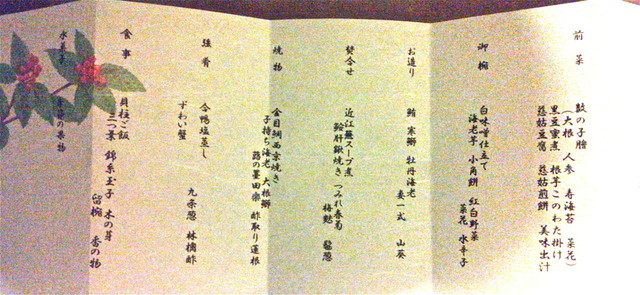 前菜
数の子膾
（大根 人参 寿海苔 菜花）
黒豆蜜煮 根芋このわた掛け
慈姑豆腐 慈姑煎餅 美味出汁
御椀
白味噌仕立て
海老芋 小角餅 紅白野菜
菜花 水辛子
お造り
鮪 寒鰤 牡丹海老
妻一式 山葵
焚合せ
近江蕪スープ煮
鮟肝鍬焼き つみれ春菊
梅麩
焼物
金目鯛西京焼き
子持ち海老 大根鰤
蕗の薹田楽 酢取り蓮根
強肴
合鴨塩蒸し 九条葱 林檎酢
ずわい蟹
食事
貝柱ご飯
三つ葉 錦糸玉子 木の芽
留椀 香の物
水菓子
季節の果物